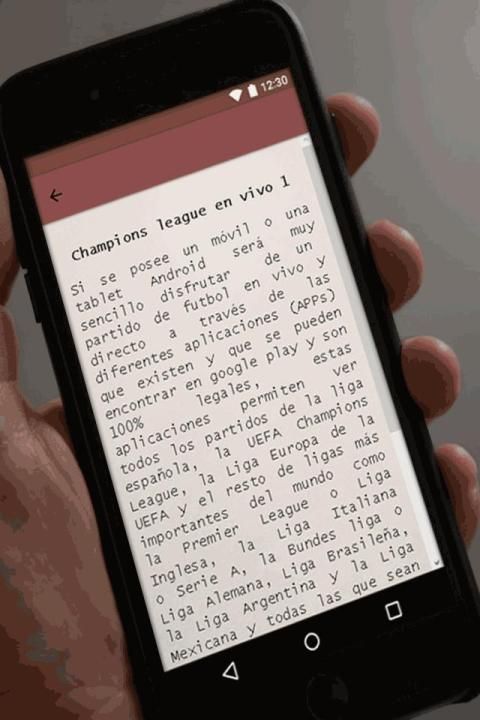 12:30
Champions league en vivo 1
Si se posee un móvil o una
tablet Android será muy
sencillo disfrutar de un
partido de futbol en vivo y
directo a través de las
diferentes aplicaciones (APPS)
que existen y que se pueden
encontrar en google play y son
100% legales, estas
aplicaciones permiten ver
todos los partidos de la liga
española, la UEFA Champions
League, la Liga Europa de la
UEFA y el resto de ligas más
importantes del mundo como
la Premier League o Liga
Inglesa, la Liga Italiana
o Serie A, la Bundes liga o
Liga Alemana, Liga Brasileña,
la Liga Argentina y la Liga
Mexicana y todas las que sean